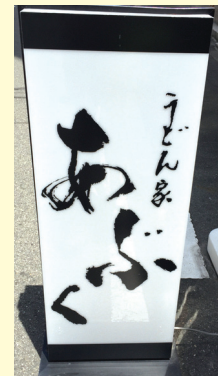 うどん家
あぶく